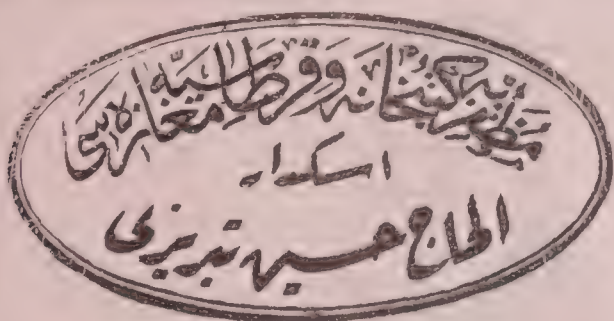 مظفریه کتبخانه و قرطاسیه مغازه‌سی
اسكدار
الحاج حسین تبریزی